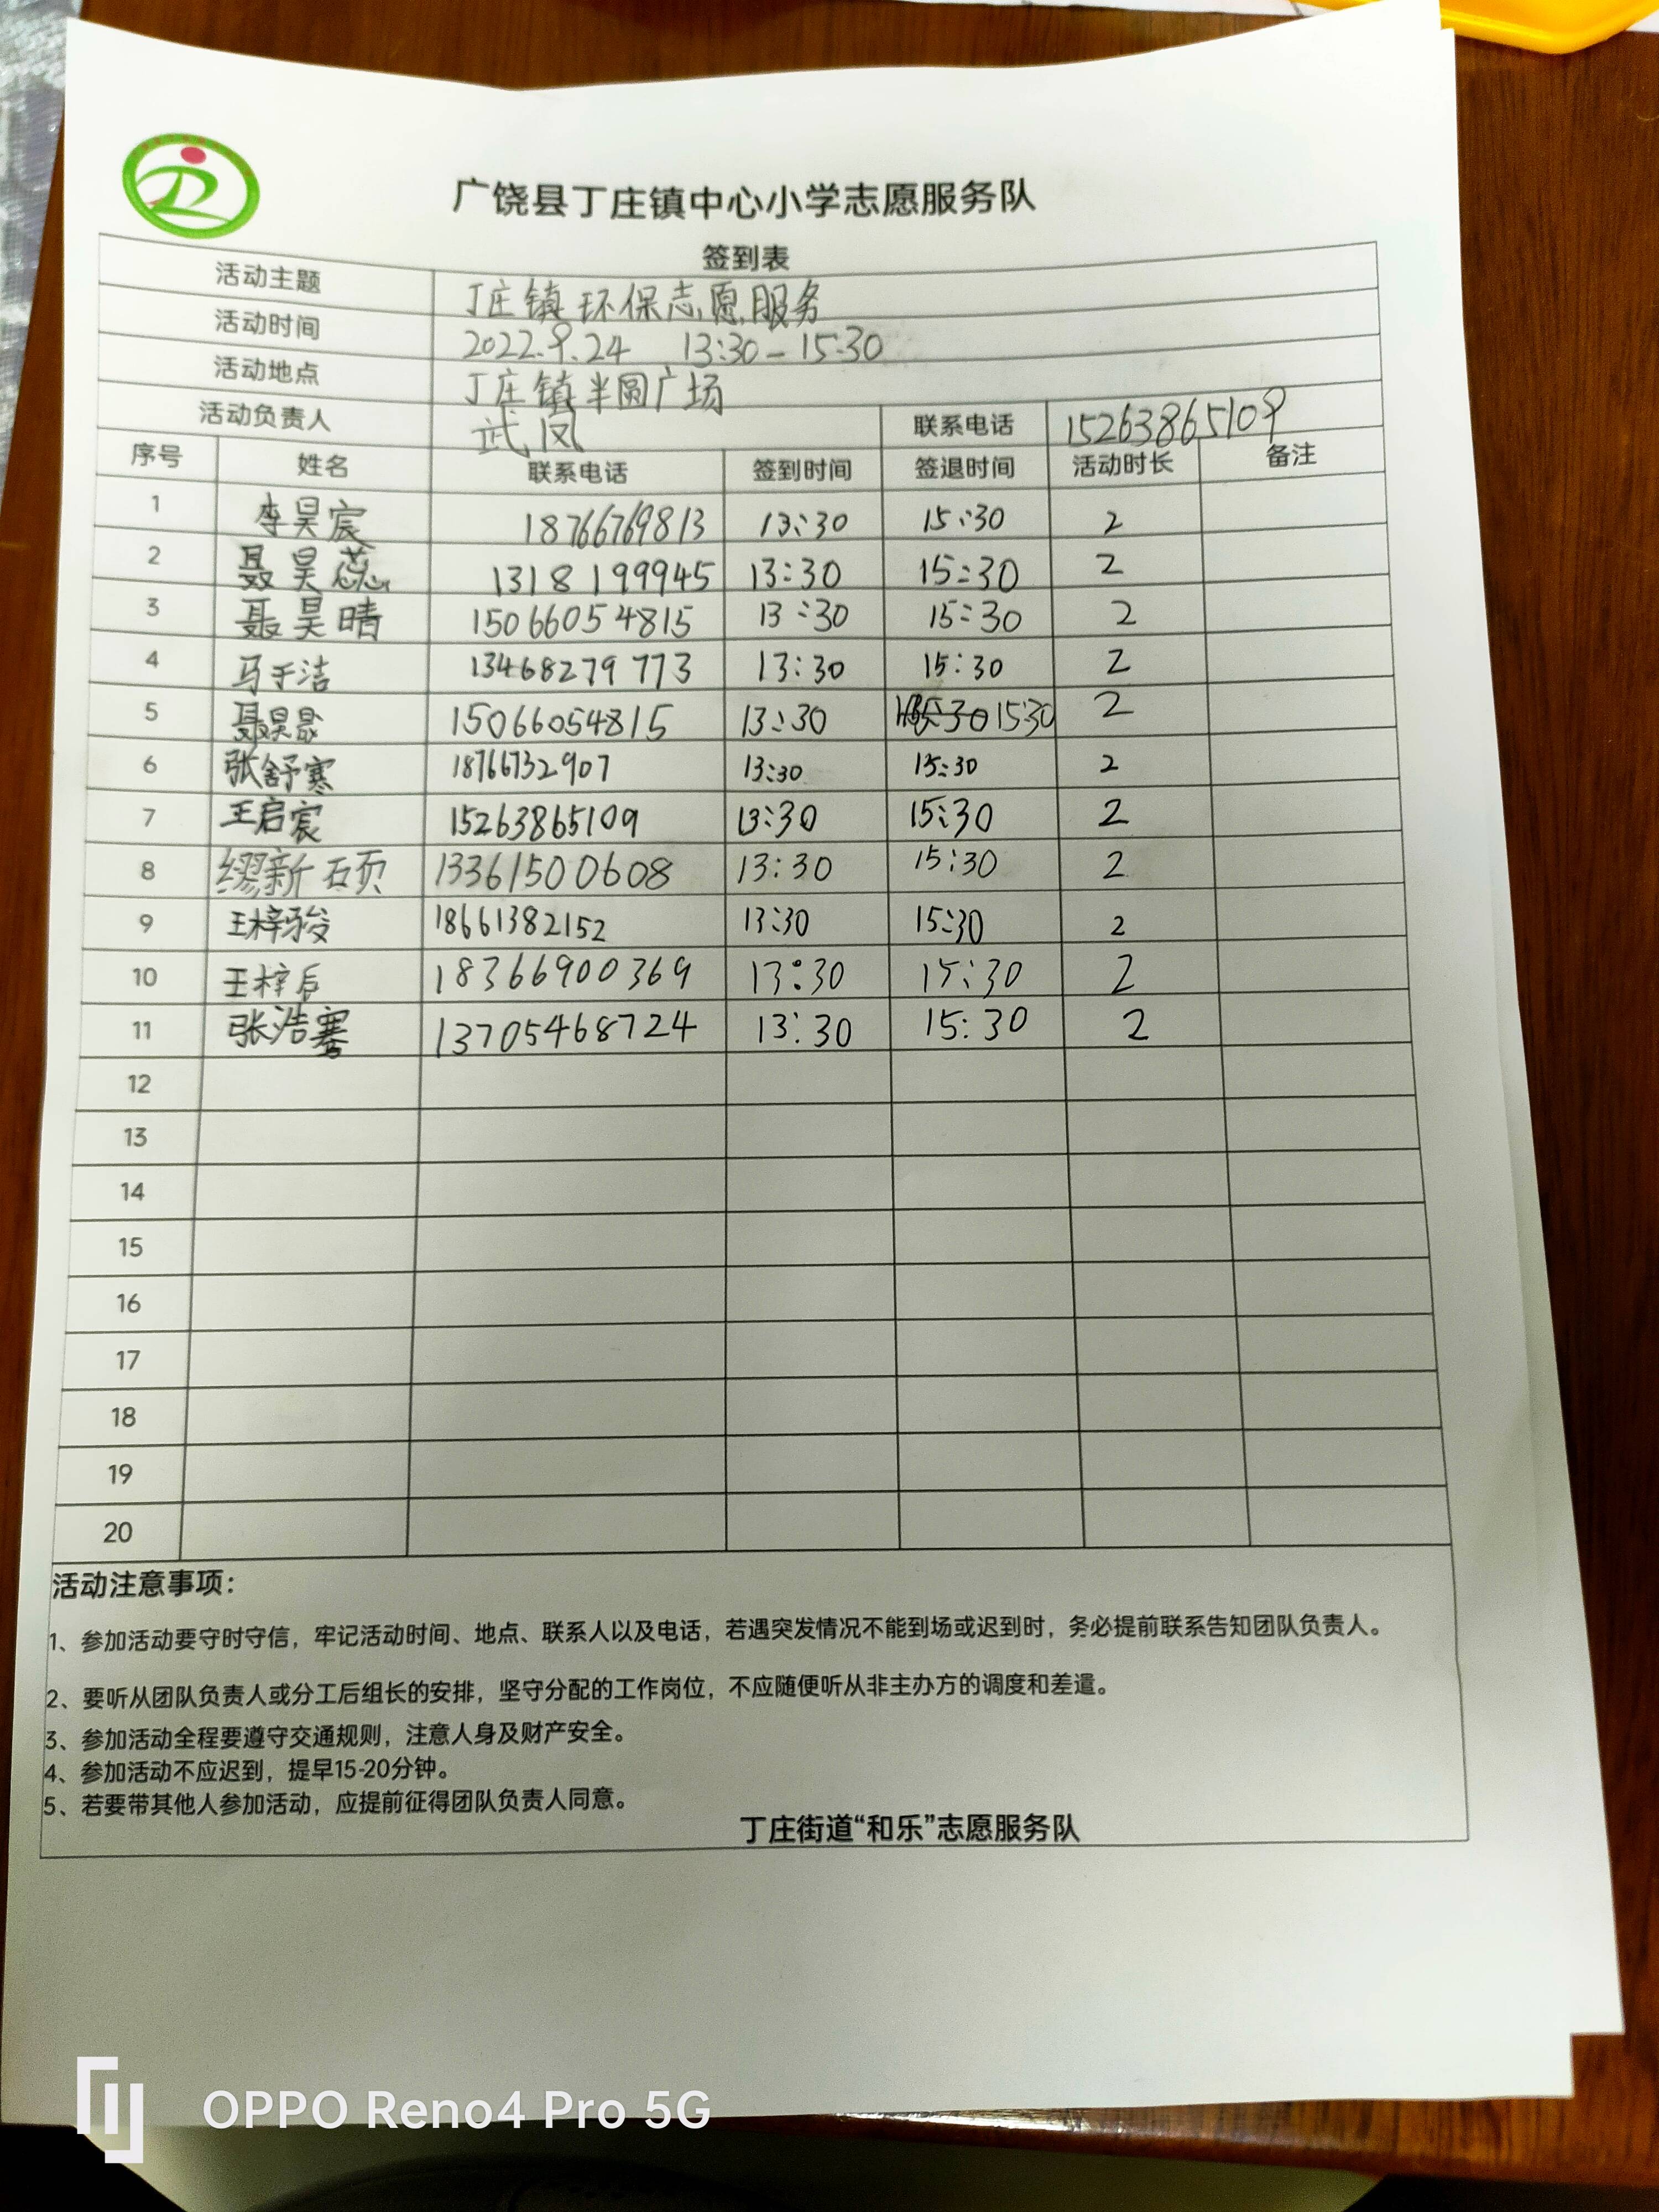 广饶县丁庄镇中心小学志愿服务队
签到表
活动主题 丁庄镇环保志愿服务
活动时间 2022.9.24 13:30-15:30
活动地点 丁庄镇半圆广场
活动负责人 武凤 联系电话 15263865109
序号 姓名 联系电话 签到时间 签退时间 活动时长 备注
1 李昊宸 18766769813 13:30 15:30 2
2 聂昊蕊 1318199945 13:30 15:30 2
3 聂昊晴 15066054815 13:30 15:30 2
4 马于洁 13468279773 13:30 15:30 2
5 聂昊晟 15066054815 13:30 15:30 2
6 张舒寒 18766732907 13:30 15:30 2
7 王启宸 15263865109 13:30 15:30 2
8 缪新硕 13361500608 13:30 15:30 2
9 王梓骏 18661382152 13:30 15:30 2
10 王梓后 18366900369 13:30 15:30 2
11 张浩骞 13705468724 13:30 15:30 2
12
13
14
15
16
17
18
19
20
活动注意事项：
1、参加活动要守时守信，牢记活动时间、地点、联系人以及电话，若遇突发情况不能到场或迟到时，务必提前联系告知团队负责人。
2、要听从团队负责人或分工后组长的安排，坚守分配的工作岗位，不应随便听从非主办方的调度和差遣。
3、参加活动全程要遵守交通规则，注意人身及财产安全。
4、参加活动不应迟到，提早15-20分钟。
5、若要带其他人参加活动，应提前征得团队负责人同意。
丁庄街道“和乐”志愿服务队
OPPO Reno4 Pro 5G